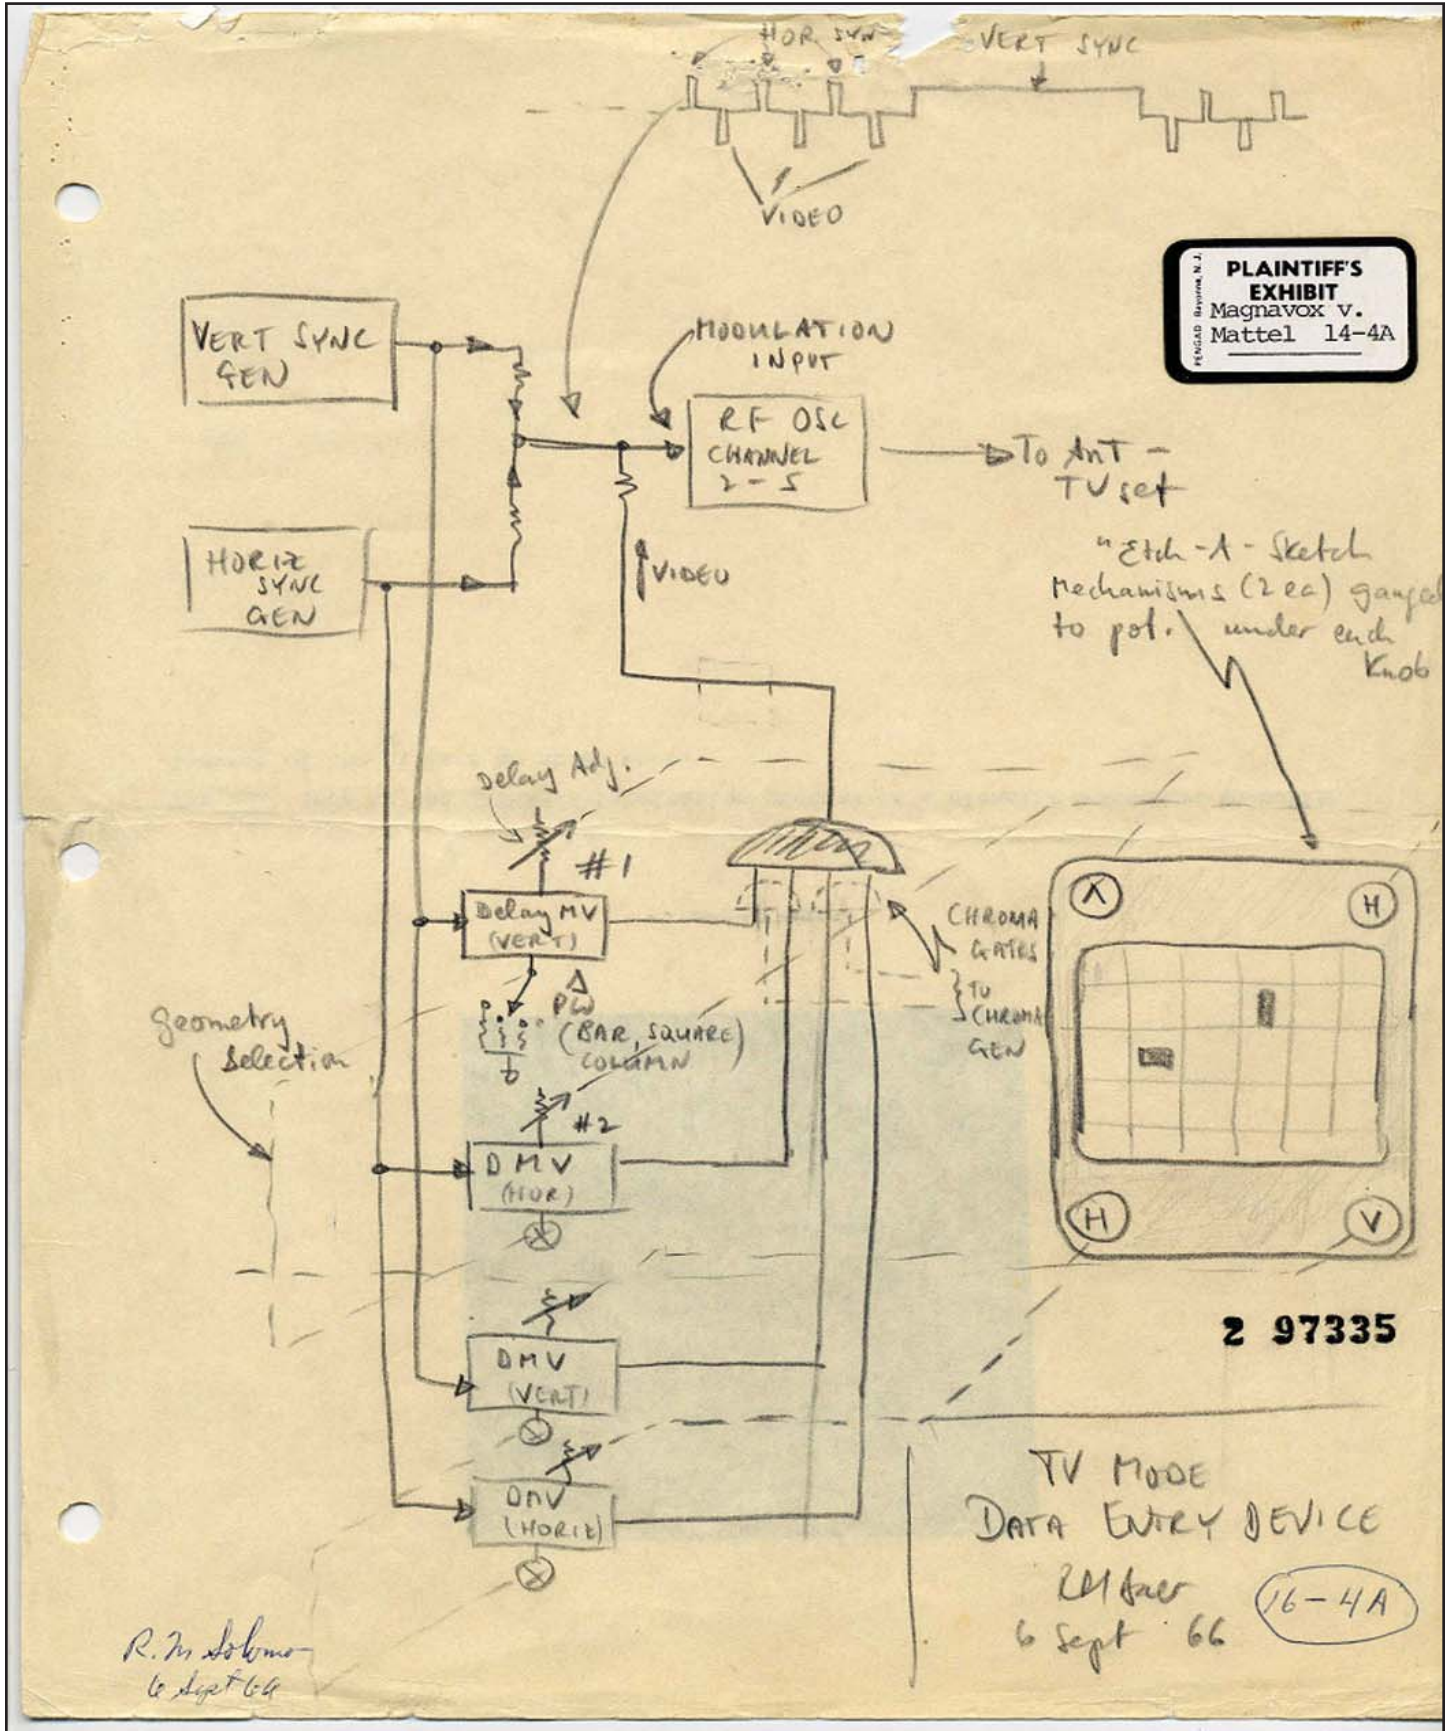 HOR SYN
VERT SYNC
VIDEO
PENGAD Bayonne, N. J.
PLAINTIFF'S
EXHIBIT
Magnavox v.
Mattel 14-4A
VERT SYNC
GEN
MODULATION
INPUT
RF OSC
CHANNEL
2-5
To AnT -
TV set
HORIZ
SYNC
GEN
VIDEO
"Etch-A-Sketch
Mechanisms (2 ea) ganged
to pot. under each
Knob
Delay Adj.
#1
Delay MV
(VERT)
PW
(BAR, SQUARE)
COLUMN
CHROMA
GATES
TO
CHROMA
GEN
Geometry
Selection
#2
DMV
(HOR)
H
H
V
DMV
(VERT)
DMV
(HORIZ)
2 97335
TV MODE
DATA ENTRY DEVICE
RHBaer
6 Sept 66
16-4A
R. M Solomo
6 Sept 66